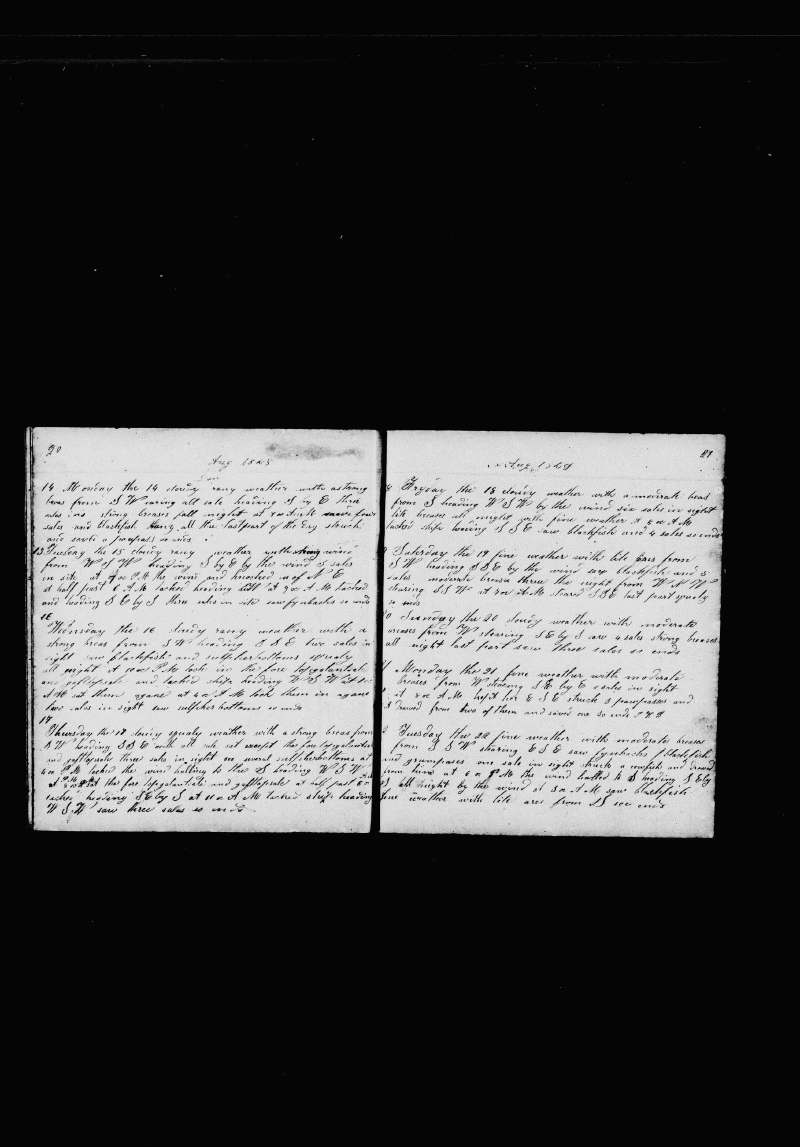 20
Aug 1848
14 Monday the 14 cloudy rany weather with a strong
breas from S W caring all sale heading S by E three
sales ins strong breases fall night at
sales and blackfish rany all the last part of the day struck
and a so ends
15 Tuesday the 15 cloudy rany weather with strong wind
from W S W heading S by E by the wind 3 sales
in site at 4 oc P.M the wind and knocked us of N E
at half past 6 A M tacked heading at 9 oc A M tacked
and heading S E by S three sales in site saw fynbacks so ends
16
Wednsday the 16 cloudy rany weather with a
strong breas from S W heading S S E two sales in
sight saw blackfish and sulpherbottoms squaly
all night at 10 oc P.M took in the fore topgalantsale
and gafttopsale and tacked ship heading W S W at
A M sat them agane at 4 oc A M took them in agane
two sales in sight saw sulpherbottoms so ends
17
Thursday the 17 cloudy squaly weather with a strong breas from
S W heading S S E with all sale sat except the fore topgalantsale
and gafttopsale three sales in sight saw sevral sulpherbottoms at
4 oc P.M tacked the wind halling to the S heading W S W
at sat the fore topgalantsale and gafttopsale at half past 5 oc
tacked heading S E by S at 10 oc A M tacked ship heading
W S W saw three sales so ends
21
Aug 1848
Fryday the 18 cloudy weather with a moderate bread
from S heading W S W by the wind six sales in sight
lite breases all night with fine weather at 8 oc A M
tacked ship heading S S E saw blackfish and 4 sales so ends
Saterday the 19 fine weather with lite ears from
S W heading S S E by the wind saw blackfish and 5
sales moderate breases threw the night from W N W
stearing S S W at 7 oc A M steard S S E last part squaly
so ends
Sunday the 20 cloudy weather with moderate
breases from W stearing S E by S saw 4 sales strong breases
all night last part saw three sales so ends
Monday the 21 fine weather with moderate
breases from W stearing S E by E 4 sales in sight
at 8 oc A M kept her E S E struck 3 grampases and
drawed from two of them and saved one so ends
Tuesday the 22 fine weather with moderate breases
from S S W stearing E S E saw fynbacks blackfish
and grampases one sale in sight struck a cowfish and drawd
from him at 6 oc P M the wind halled to S heading S E by
S all night by the wind at 8 oc A M saw blackfish
fine weather with lite ares from S soo ends